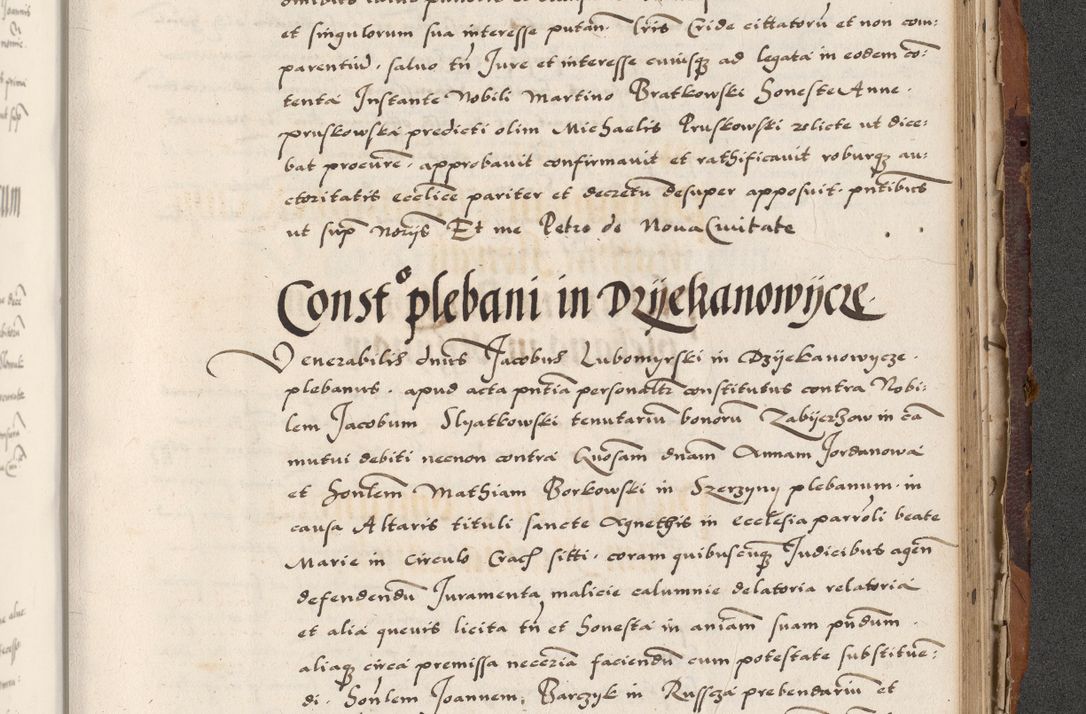 et singulorum sua interesse putan̄ lr̄is Cride cittatorū et non com:
parentiū · saluo tn̄ Jure et interesse cuiusq̨ ad legata in eodem co͞:
tenta Instante Nobili Martino Bratkowski Honeste Anne ·
pruskowska predicti olim Michaelis Pruskowski relicte ut dice:
bat procurē · approbauit confirmauit et rathificauit roburq̨ au:
ctoritatis ecclīce pariter et decretū desuper apposuit · pn̄tibus
ut sup̄ Norijs̄ Et me Petro de Noua Ciuitate
Const͞o plebani in Drijekanowijcze ·
Venerabilis dnūs Jacobus Lubomyrski in Dzijekanowycze ·
plebanus · apud acta pn̄tia personal͞r constitutus contra Nobi:
lem Jacobum Slyatkowski tenutariū bonorū Zabijerzow in cā
mutui debiti necnon contra Gn̄osam dnām Annam Jordanowa
et Hon̄lem Mathiam Borkowski in Szerzyny plebanum · in
causa Altaris tituli sancte Agnethis in ecclesia parr͞oli beate
Marie in Circulo Crac̄ siti · coram quibuscunq̨ Judicibus agen̄
defendendū Juramenta malicie calumnie delatoria relatoria
et alia queuis licita tn̄ et honesta in anīam suam p̄ndum ·
aliaq̨ circa premissa necc̄ria faciendū cum potestate substitue:
di · Hon̄lem Joannem Barczyk in Russcza prebendariū et